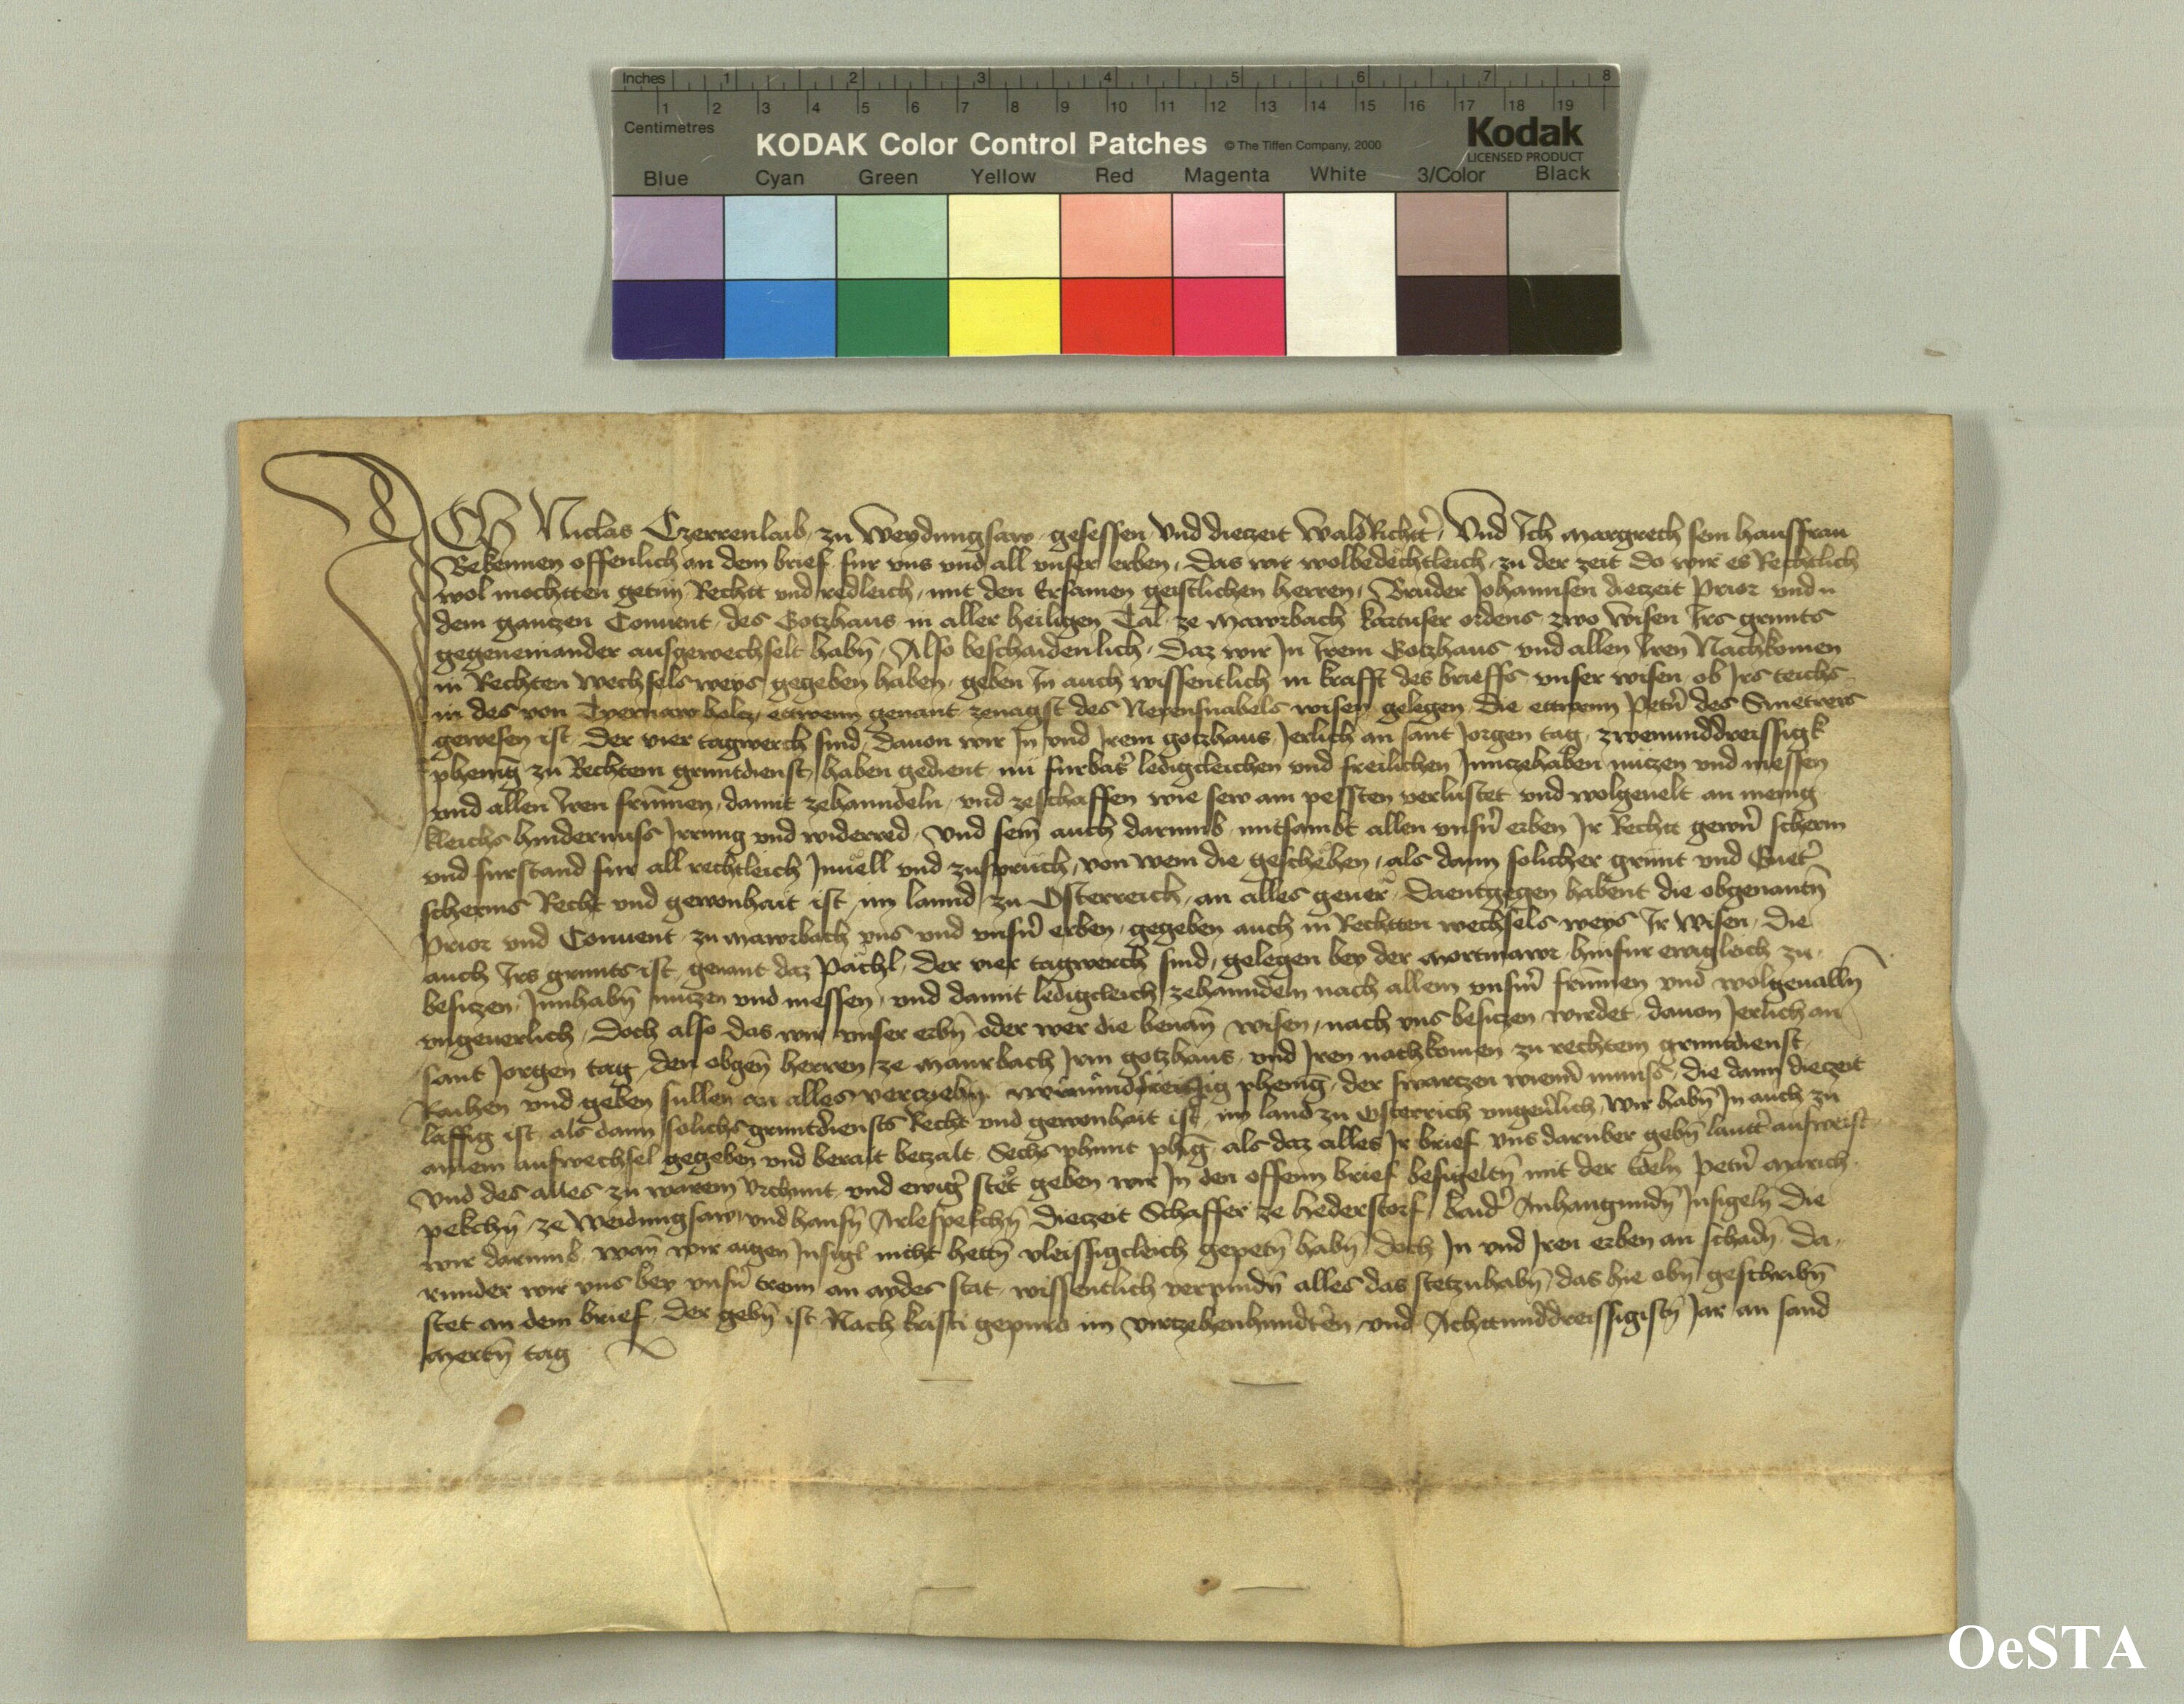 Inches 1 2 3 4 5 6 7 8
1 2 3 4 5 6 7 8 9 10 11 12 13 14 15 16 17 18 19
Centimetres
KODAK Color Control Patches © The Tiffen Company, 2000 Kodak
LICENSED PRODUCT
Blue Cyan Green Yellow Red Magenta White 3/Color Black
ICH Niclas Czerrenlaib zu Weydungsaw gesessen Vnd diezeit WaldRichtr Vnd Ich margreth sein hausfrau
Bekennen offenlich an dem brief fur vns vnd all vnser erben, Das wir wolbedechtleich zu der zeit do wir es Rechtlich
wol mochtten getun Rechtt vnd redleich, mit den Ersamen geistlichen herren, Bruder Johannsen diezeit Prior vnd
dem ganczen Conuent des Gotzhaus in aller heiligen Tal ze Mawrbach kartuser ordens zwo wisen Irs grunts
gegeneinander ausgewechselt habn, Also beschaidenlich, Daz wir In Irem Gotzhaus vnd allen Iren Nachkomen
in Rechten wechsels weys gegeben haben, geben In auch wissentlich in krafft des brieffs vnser wisen ob Irs teichs
in des von Tyernaw holcz, ettwenn genant zenagst des wisen gelegen die ettwenn Petrn des Smetrers
gewesen ist, Der vier tagwerch sind, dauon wir In vnd Irem gotzhaus Jerlich an sant Jorgen tag zwenunddreissigk
phening zu Rechtem gruntdienst haben gedient, nu furbas ledigcleichen vnd freilichen Innczehaben nuczen vnd niessen
vnd allen Iren frumen, damit zehanndeln vnd zeschaffen wie sew am pessten verlustet vnd wolgeuelt an menig
kleichs hindernuss Irrung vnd widerred, Vnd sein auch darumb mitsambt allen vnsern erben Ir Rechtt gewern scherm
vnd furstand fur all rechtleich Inuell vnd zuspruch, von wem die geschehen, als dann solicher grunt vnd Guetr
scherms Recht vnd gewonhait ist im lannd zu Osterreich, an alles geuer, Daentgegen habent die obgenantn
Prior vnd Conuent zu mawrbach vns vnd vnsern erben, gegeben auch in Rechtten wechsels weys Ir Wisen, die
auch Irs grunts ist, genant daz Pächl, Der vier tagwerch sind, gelegen bey der hinfur ewigleich zu
besiczen, Innhabn nuczen vnd niessen, vnd damit ledigcleich zehanndeln nach allem vnserm frumen vnd wolgeualln
vngeuerlich, Doch also das wir vnser erbn oder wer die benan wisen, nach vns besiczen wirdet, dauon Jerlich an
sant Jorgen tag, den obgen herren ze Maurbach Irm gotzhaus, vnd Iren nachkomen zu rechtem gruntdienst
Raihen vnd geben sullen an alles verczichn phening, der swarczen wienner munss, die dann diezeit
lässig ist, als dann solichs gruntdiensts Recht vnd gewonhait ist, im land zu Osterrich vngeuerlich, Wir habn In auch zu
ainem aufwechsel gegeben vnd berait betzalt Sechs phunt pheg, als daz alles Ir brief vns daruber gebn lauttr ausweist
Vnd des alles zu warem Vrchunt vnd ewiger stet geben wir In den offenn brief besigeltn mit der Edeln Petrn
ze Weidungsaw, vnd hansn Arlespekchn diezeit Schaffer ze hederstorf, baidr Anhangundn Insigeln, Die
wir darumb, wan wir aigen Insigl nicht hettn vleissigcleich gepetn habn, Doch In vnd Iren erben an schadn, Da
runder wir vns bey vnsern trewn an aydes stat, wissentlich verpindn alles das stetzuhabn, das hie obn geschribn
stet an dem brief, Der gebn ist Nach kristi gepurd im Virczehenhundten, vnd Achttunddreissigistn Jar an sand
Mertn tag
OeSTA